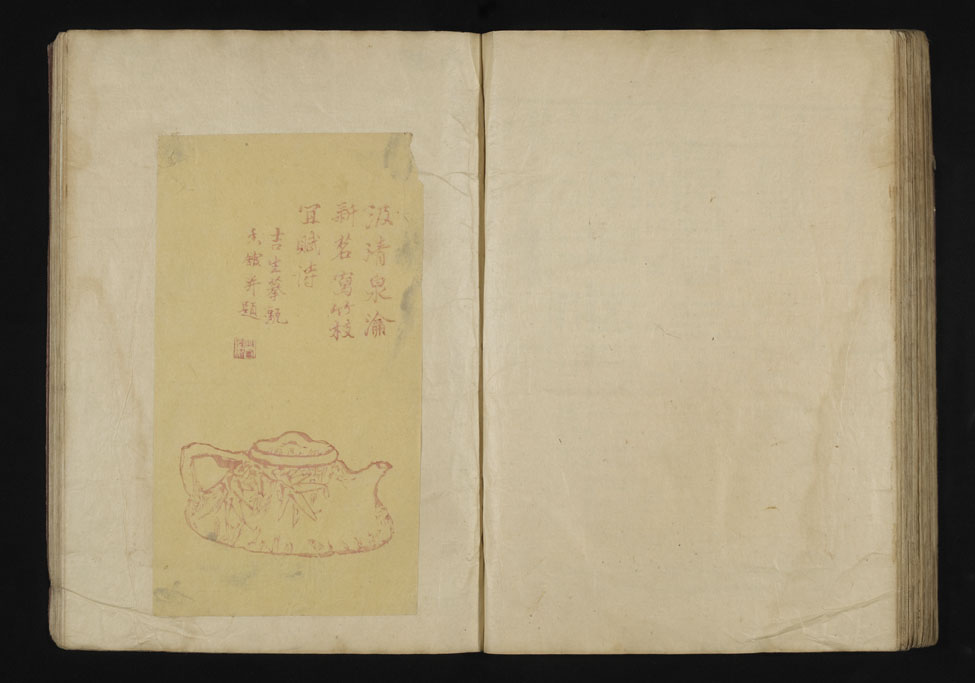 汲清泉瀹
新茗寫竹枝
宜賦詩
吉生摹甎
香鐵并題